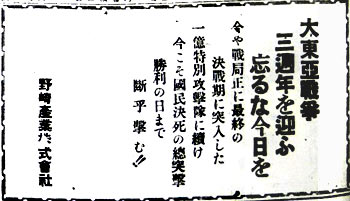 大東亞戰爭
三週年を迎ふ
忘るな今日を
今や戰局正に最終の
決戰期に突入した
一億特別攻擊隊に續け
今こそ國民決死の總突擊
勝利の日まで
斷乎擊む!!
野崎產業株式會社